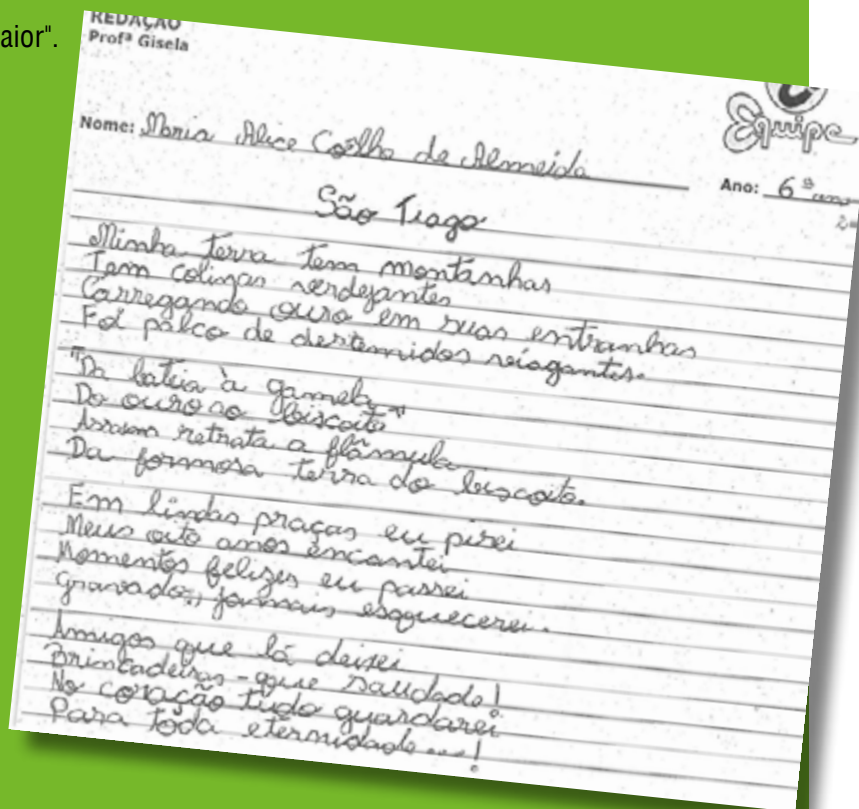 aior".
REDAÇÃO
Profª Gisela
Equipe
Nome: Maria Alice Coelho de Almeida
Ano: 6º ano
São Tiago
Minha terra tem montanhas
Tem colinas verdejantes
Carregando ouro em suas entranhas
Foi palco de destemidos viajantes.
"Da bateia à gamela
Do ouro ao biscoito"
Assim retrata a flâmula
Da formosa terra do biscoito.
Em lindas praças eu pisei
Meus oito anos encantei
Momentos felizes eu passei
Gravados, jamais esquecerei.
Amigos que lá deixei
Brincadeiras - que saudade!
No coração tudo guardarei
Para toda eternidade...!